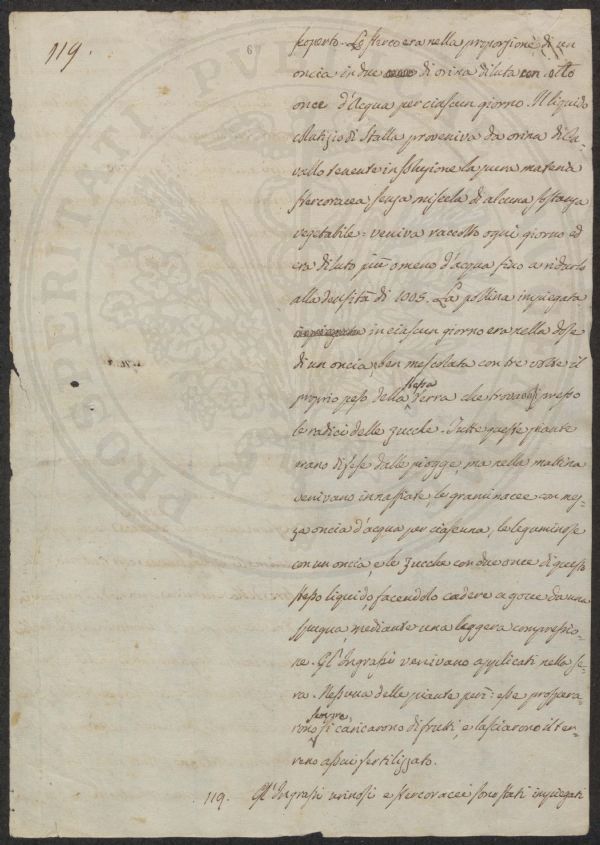 119.
scoperto. Lo sterco era nella proporzione di un
oncia in due di orina diluta con otto
once d'Acqua per ciascun giorno. Il liquido
di Stalla proveniva da orina di Ca-
vallo tenente in soluzione la pura materia
stercoracea senza miscela di alcuna sostanza
vegetabile: veniva raccolto ogni giorno ed
era diluto più o meno d'acqua fino a ridurlo
alla densità di 1005. La pollina impiegata
in ciascun giorno era nella dose
di un oncia, ben mescolata con tre volte il
proprio peso della stessa Terra che trovavasi presso
le radici delle zucche. Tutte queste piante
erano difese dalle piogge, ma nella mattina
venivano innaffiate, le graminacee con mez-
za oncia d'acqua per ciascuna, le leguminose
con un oncia, e le zucche con due once di questo
stesso liquido, facendolo cadere a gocce da una
spugna, mediante una leggera compressio-
ne. Gl'Ingrassi venivano applicati nella se-
ra. Nessuna delle piante perì: esse prospera-
rono sempre si caricarono di frutti, e lasciarono il ter-
reno assai fertilizzato.
119. Gl'Ingrassi urinosi e stercoracei sono stati impiegati
PROSPERITATI PUBLICAE